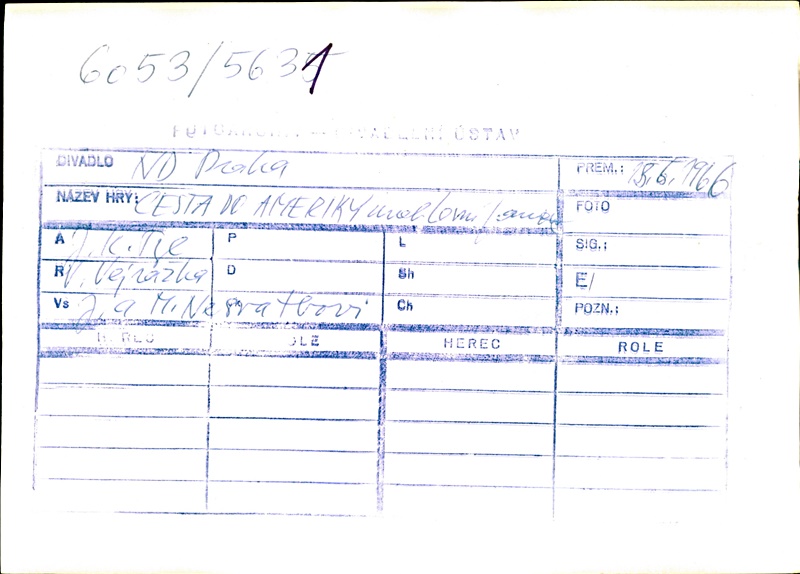 6053/5631
FOTOARCHIV — DIVADELNÍ ÚSTAV
DIVADLO ND Praha PREM.: 18.6.1966
NÁZEV HRY: CESTA DO AMERIKY FOTO
A J. K. Tyl P L SIG.:
R V. Vejražka D Sh E/
Vs J. a M. Nesvatbovi Ch POZN.:
HEREC ROLE HEREC ROLE